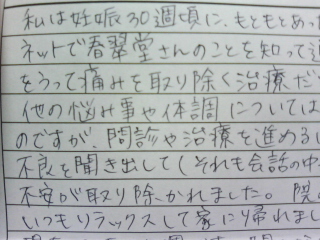 私は妊娠30週頃に、もともとあっ
ネットで春翠堂さんのことを知って
をうって痛みを取り除く治療だ
他の悩み事や体調については
のですが、問診や治療を進める
不良を聞き出して(それも会話の中
不安が取り除かれました。
いつもリラックスして家に帰れまし